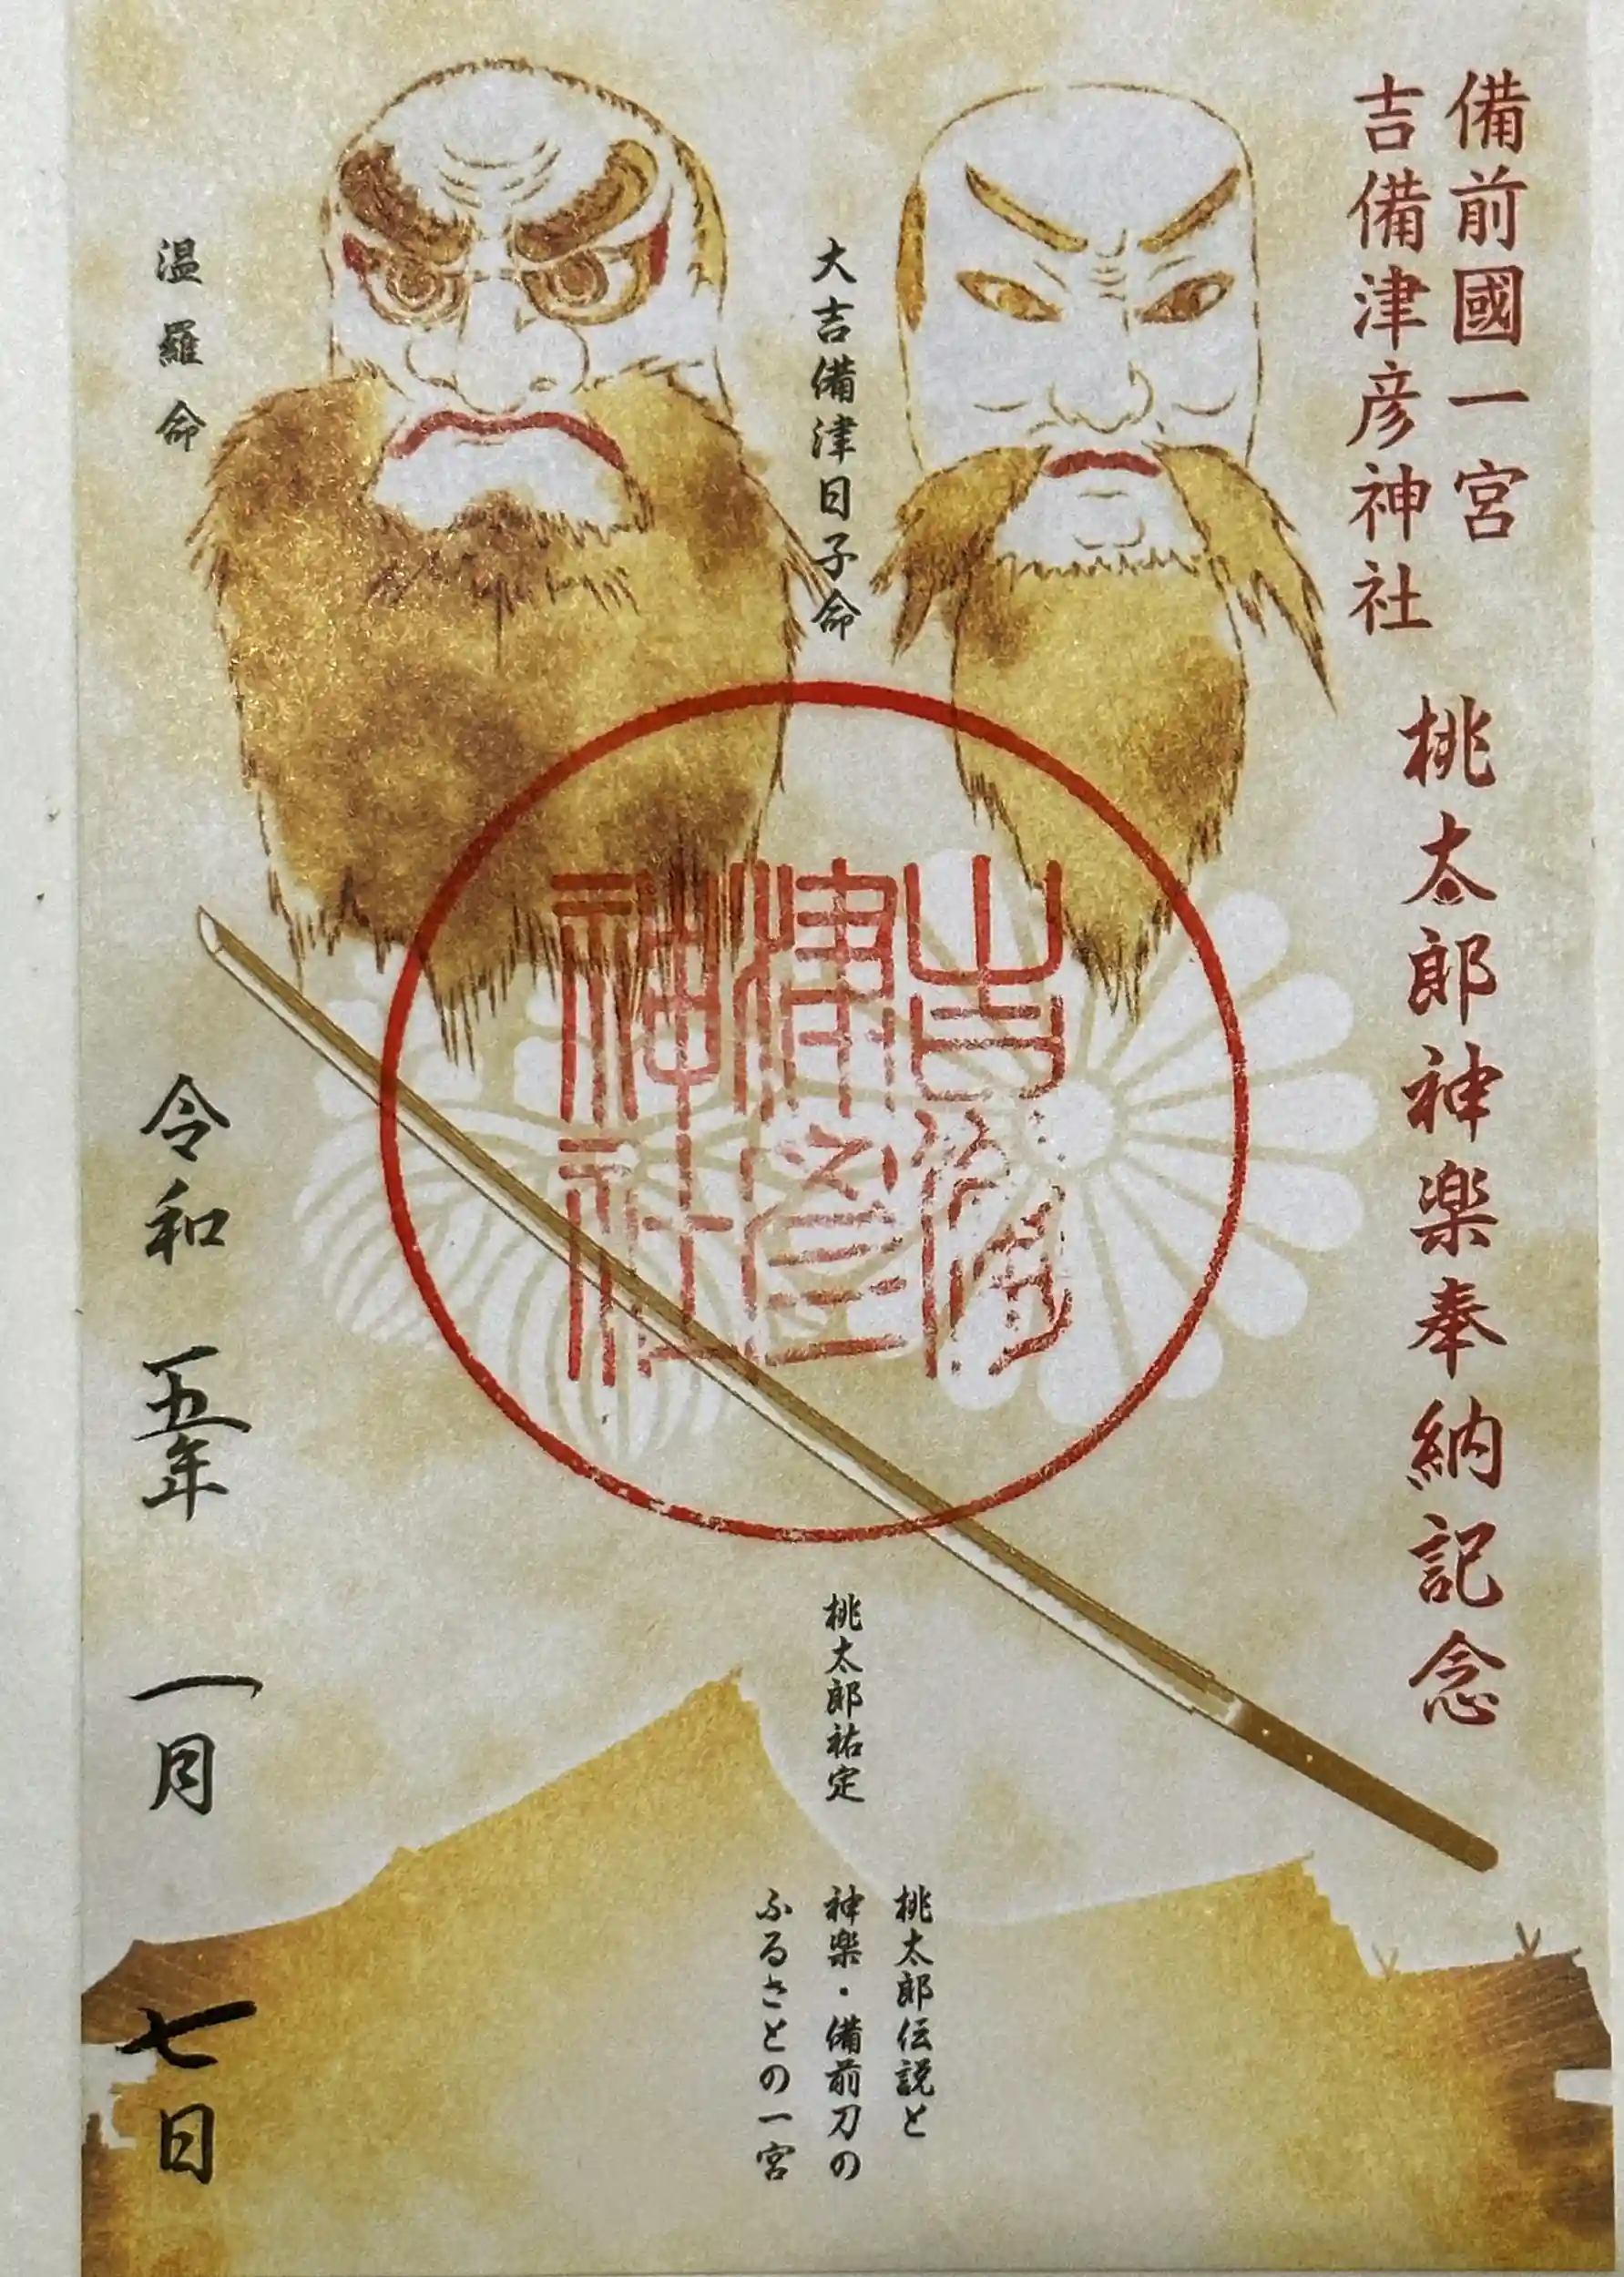 備前國一宮
吉備津彦神社
桃太郎神楽奉納記念
大吉備津日子命
温羅命
吉備
津彦
神社
桃太郎祐定
桃太郎伝説と
神楽・備前刀の
ふるさとの一宮
令和五年一月七日